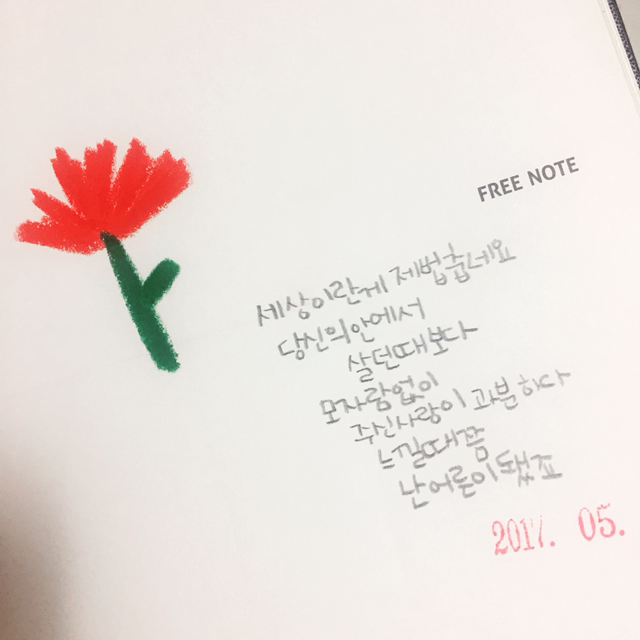 FREE NOTE
세상이란게 제법춥네요
당신의안에서
살던때보다
모자람없이
주신사랑이 과분하다
느낄때쯤
난어른이됐죠
2017. 05.